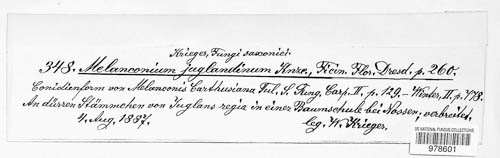 Krieger, Fungi saxonici.
348. Melanconium juglandinum Knze., Ficin. Flor. Dresd. p. 260.
Conidienform von Melanconis Carthusiana Tul. S. Fung. Carp. II. p. 129. – Winter, II. p. 778.
An dürren Stämmchen von Juglans regia in einer Baumschule bei Nossen, verbreitet.
4. Aug. 1887. leg. W. Krieger.
US NATIONAL FUNGUS COLLECTIONS
978601